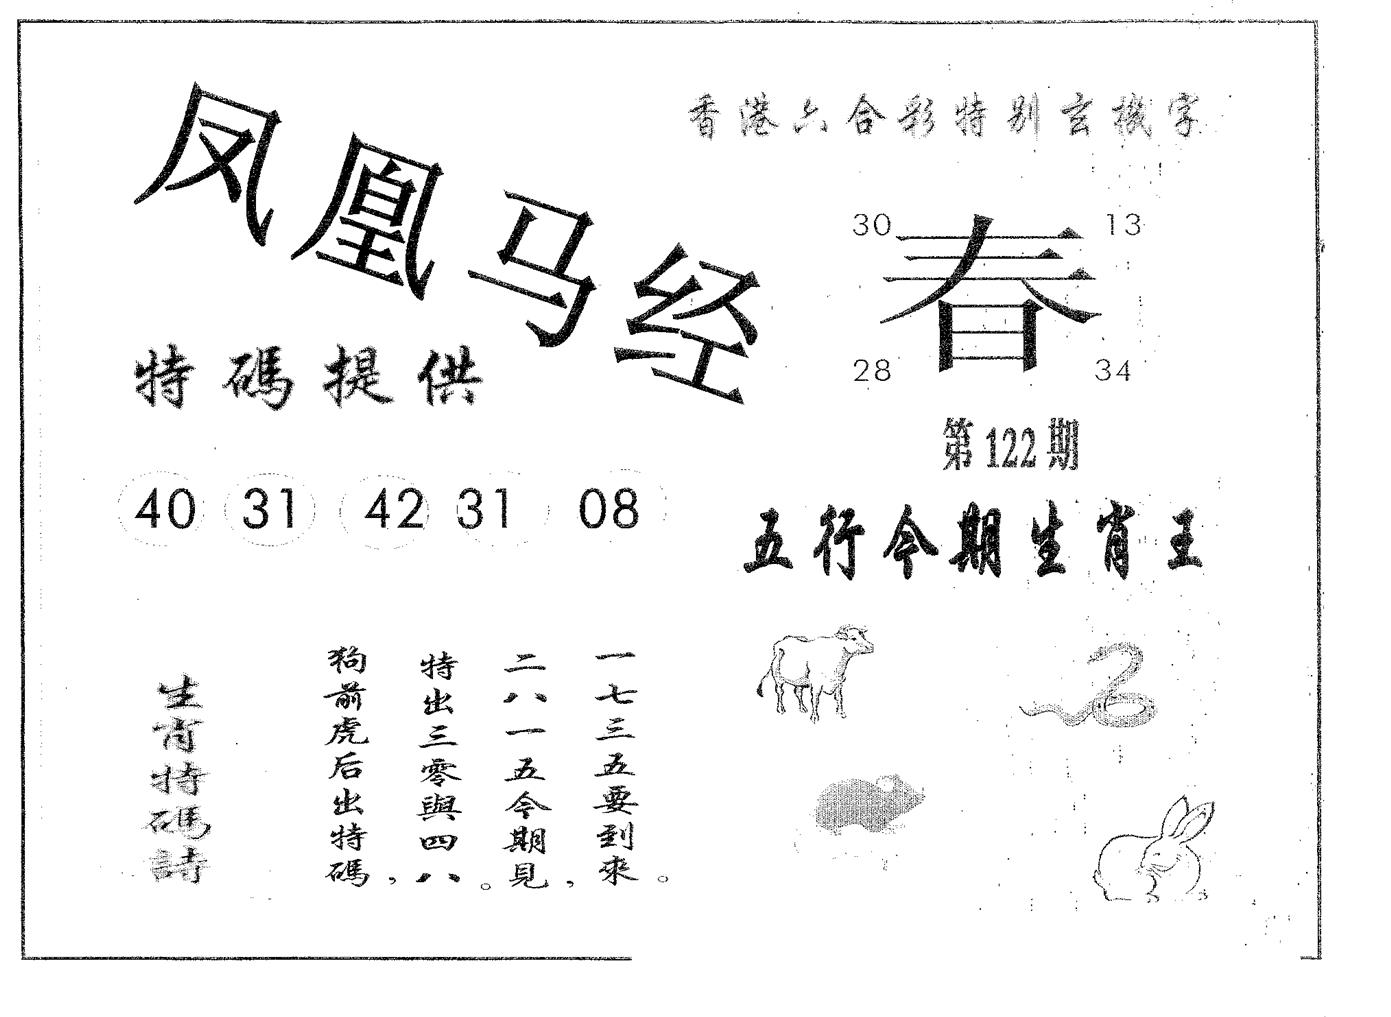 凤凰马经
香港六合彩特别玄機字
30 13
春
28 34
第122期
特碼提供
40 31 42 31 08
五行今期生肖王
生肖特碼詩
狗前虎后出特碼，
特出三零與四八。
二八一五今期見，
一七三五要到來。